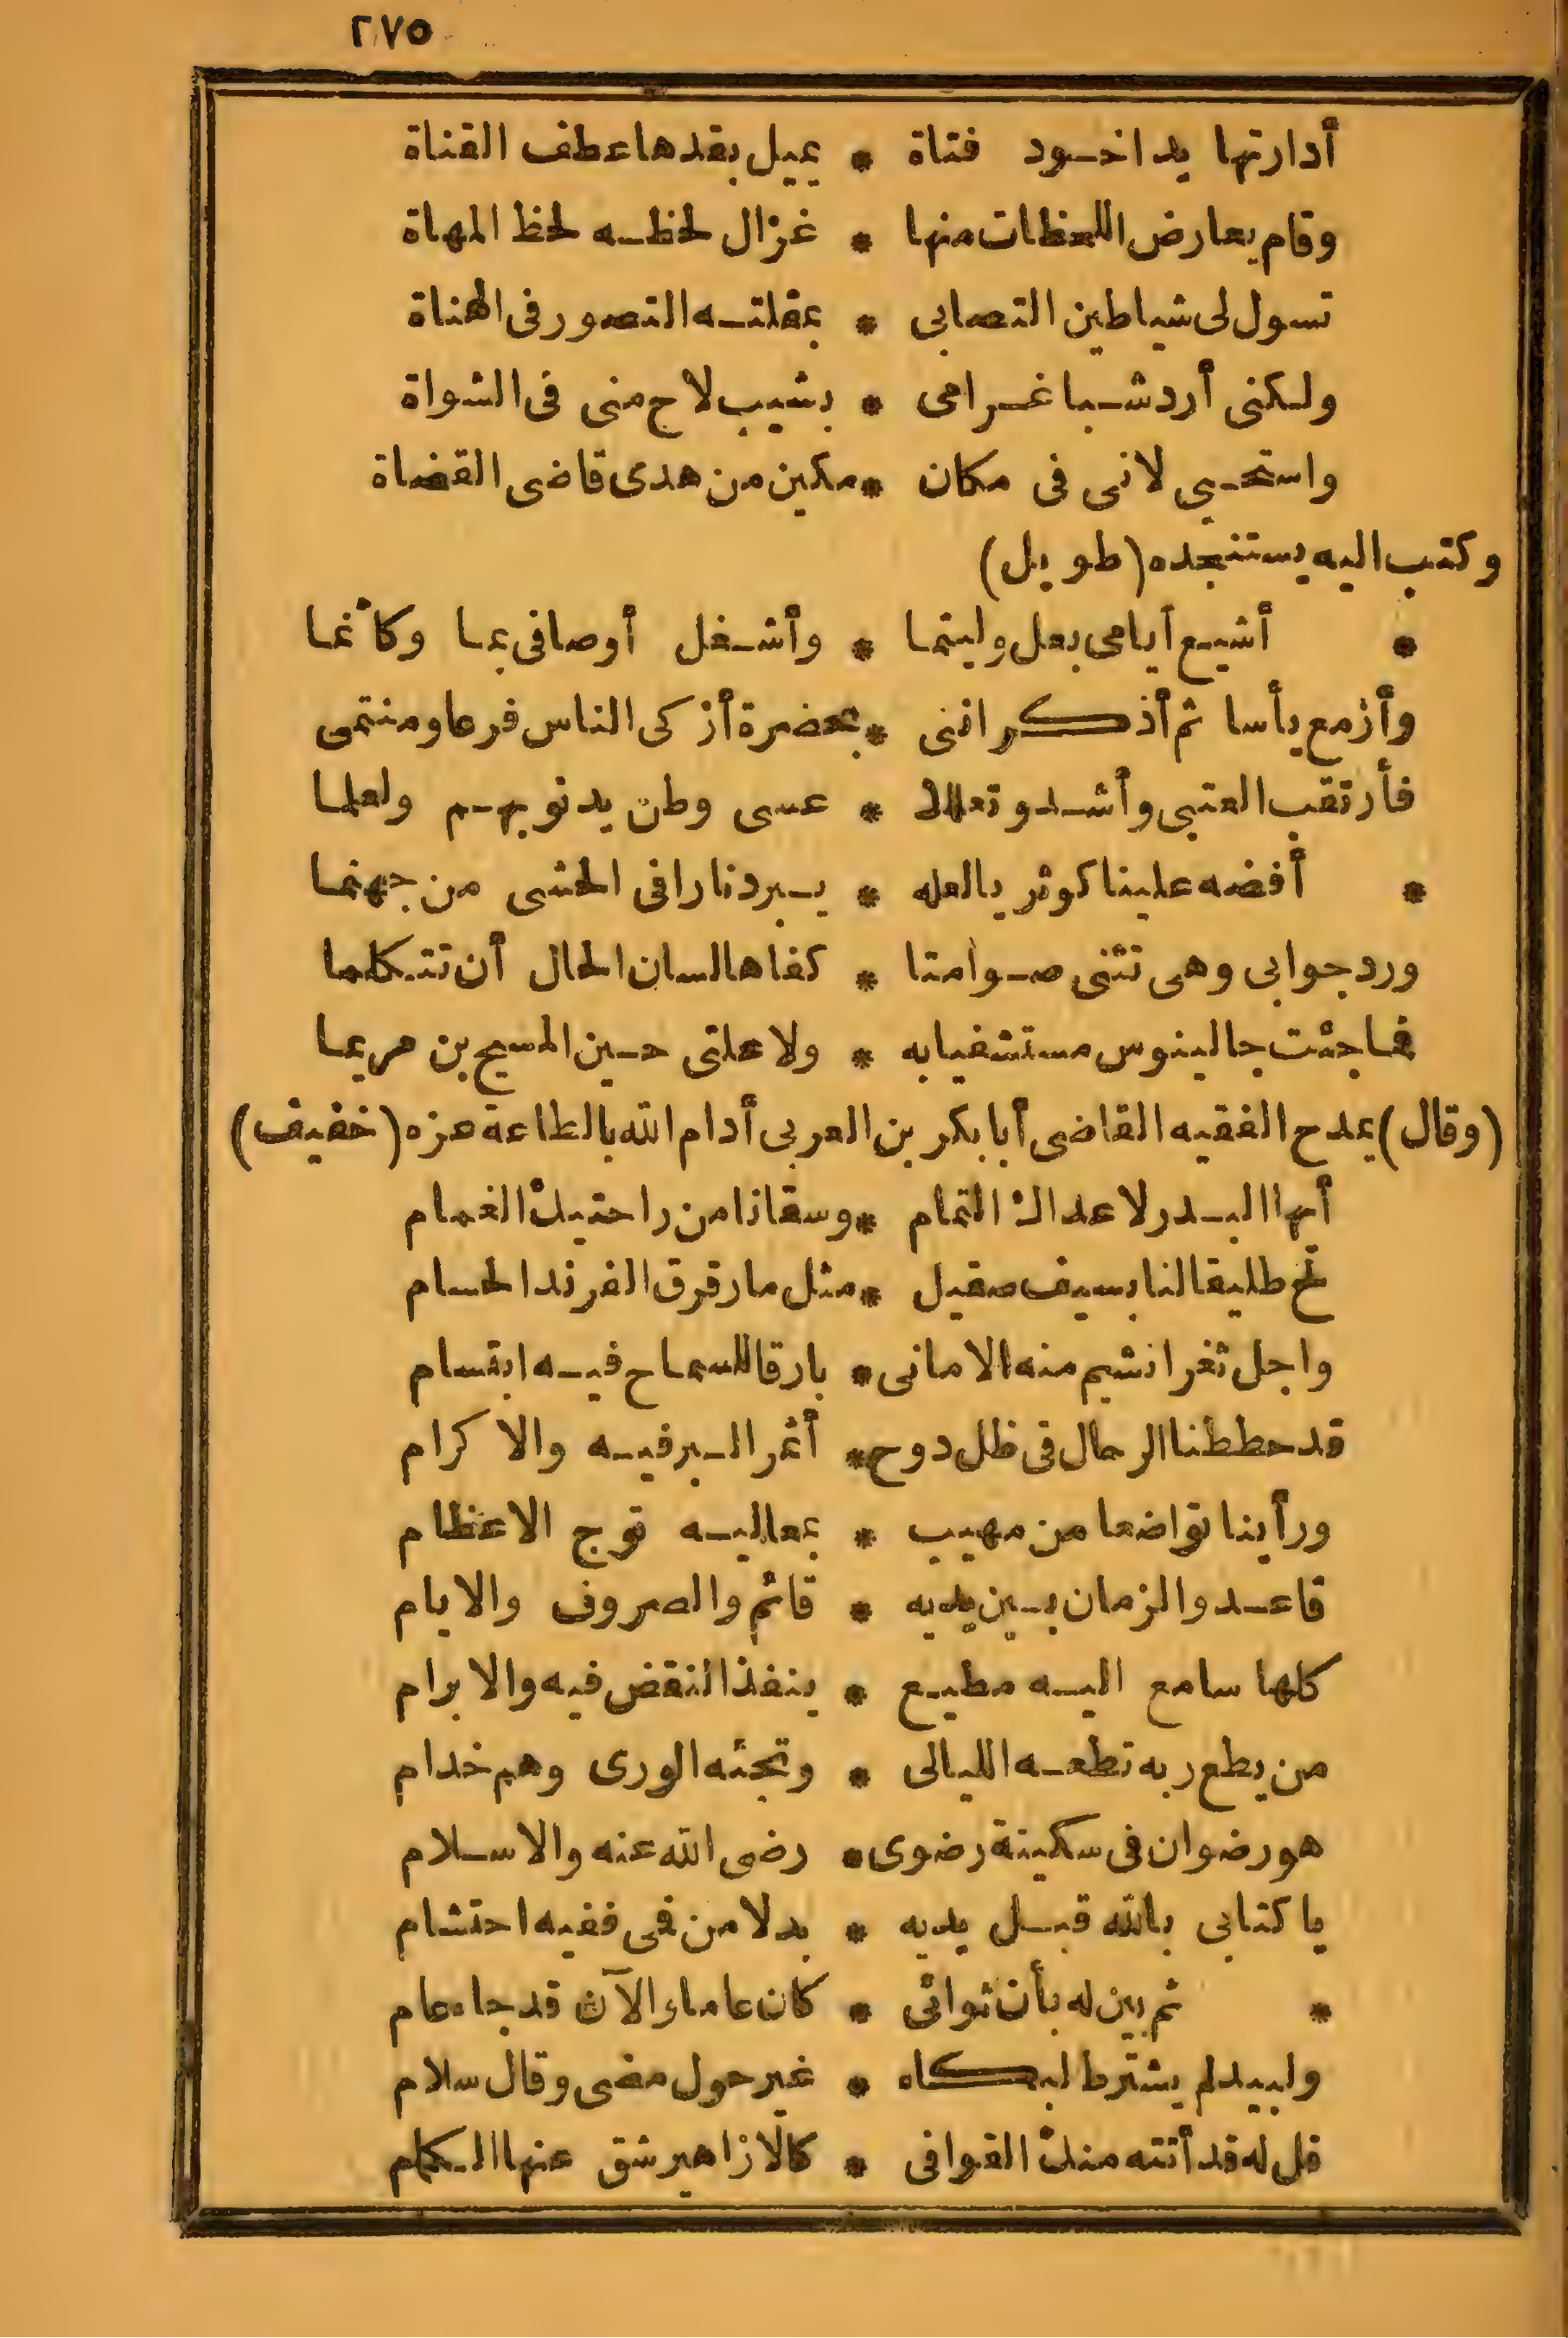 ٢٧٥
أدارتها يداخود فتاة * يميل بقدها عطف القناة
وقام يعارض اللحظات منها * غزال لحظه لحظ المهاة
تسول لى شياطين التصابى * بمقلته التصور فى الهناة
ولكنى أرد شبا غرامى * بشيب لاح منى فى الشواة
واستحيى لانى فى مكان * مكين من هدى قاضى القضاة
وكتب اليه يستنجده (طويل)
* أشيع أيامى بعل وليتما * وأشغل أوصافى بما وكأنما
وأزمع يأسا ثم أذكر اننى * بحضرة أزكى الناس فرعا ومنتمى
فأرتقب العتبى وأشدو تعللا * عسى وطن يدنو بهم ولعلما
* أفضه علينا كوثر يا لعله * يبرد نارا فى الحشى من جهنما
ورد جوابى وهى تثنى صوامتا * كفاها لسان الحال أن تتكلما
فما جئت جالينوس مستشفيا به * ولا علتى حين المسيح بن مريما
(وقال) يمدح الفقيه القاضى أبا بكر بن العربى أدام الله بالطاعة عزه (خفيف)
أيها البدر لا عداك التمام * وسقانا من راحتيك الغمام
لح طليقا لنا بسيف صقيل * مثل ما رقرق الفرند الحسام
واجل ثغرا نشيم منه الامانى * بارقا للسماح فيه ابتسام
قد حططنا الرحال فى ظل دوح * أثمر البر فيه والاكرام
ورأينا تواضعا من مهيب * بمعاليه توج الاعظام
قاعد والزمان بين يديه * قائم والصروف والايام
كلها سامع اليه مطيع * ينفذ النقض فيه والابرام
من يطع ربه تطعه الليالى * وتجئه الورى وهم خدام
هو رضوان فى سكينة رضوى * رضى الله عنه والاسلام
يا كتابى بالله قبل يديه * بدلا من فمى ففيه احتشام
* ثم بين له بأن ثوائى * كان عاما والآن قد جاء عام
ولبيد لم يشترط لبكاه * غير حول مضى وقال سلام
قل له قد أتته منك القوافى * كالازاهير شق عنها الكمام